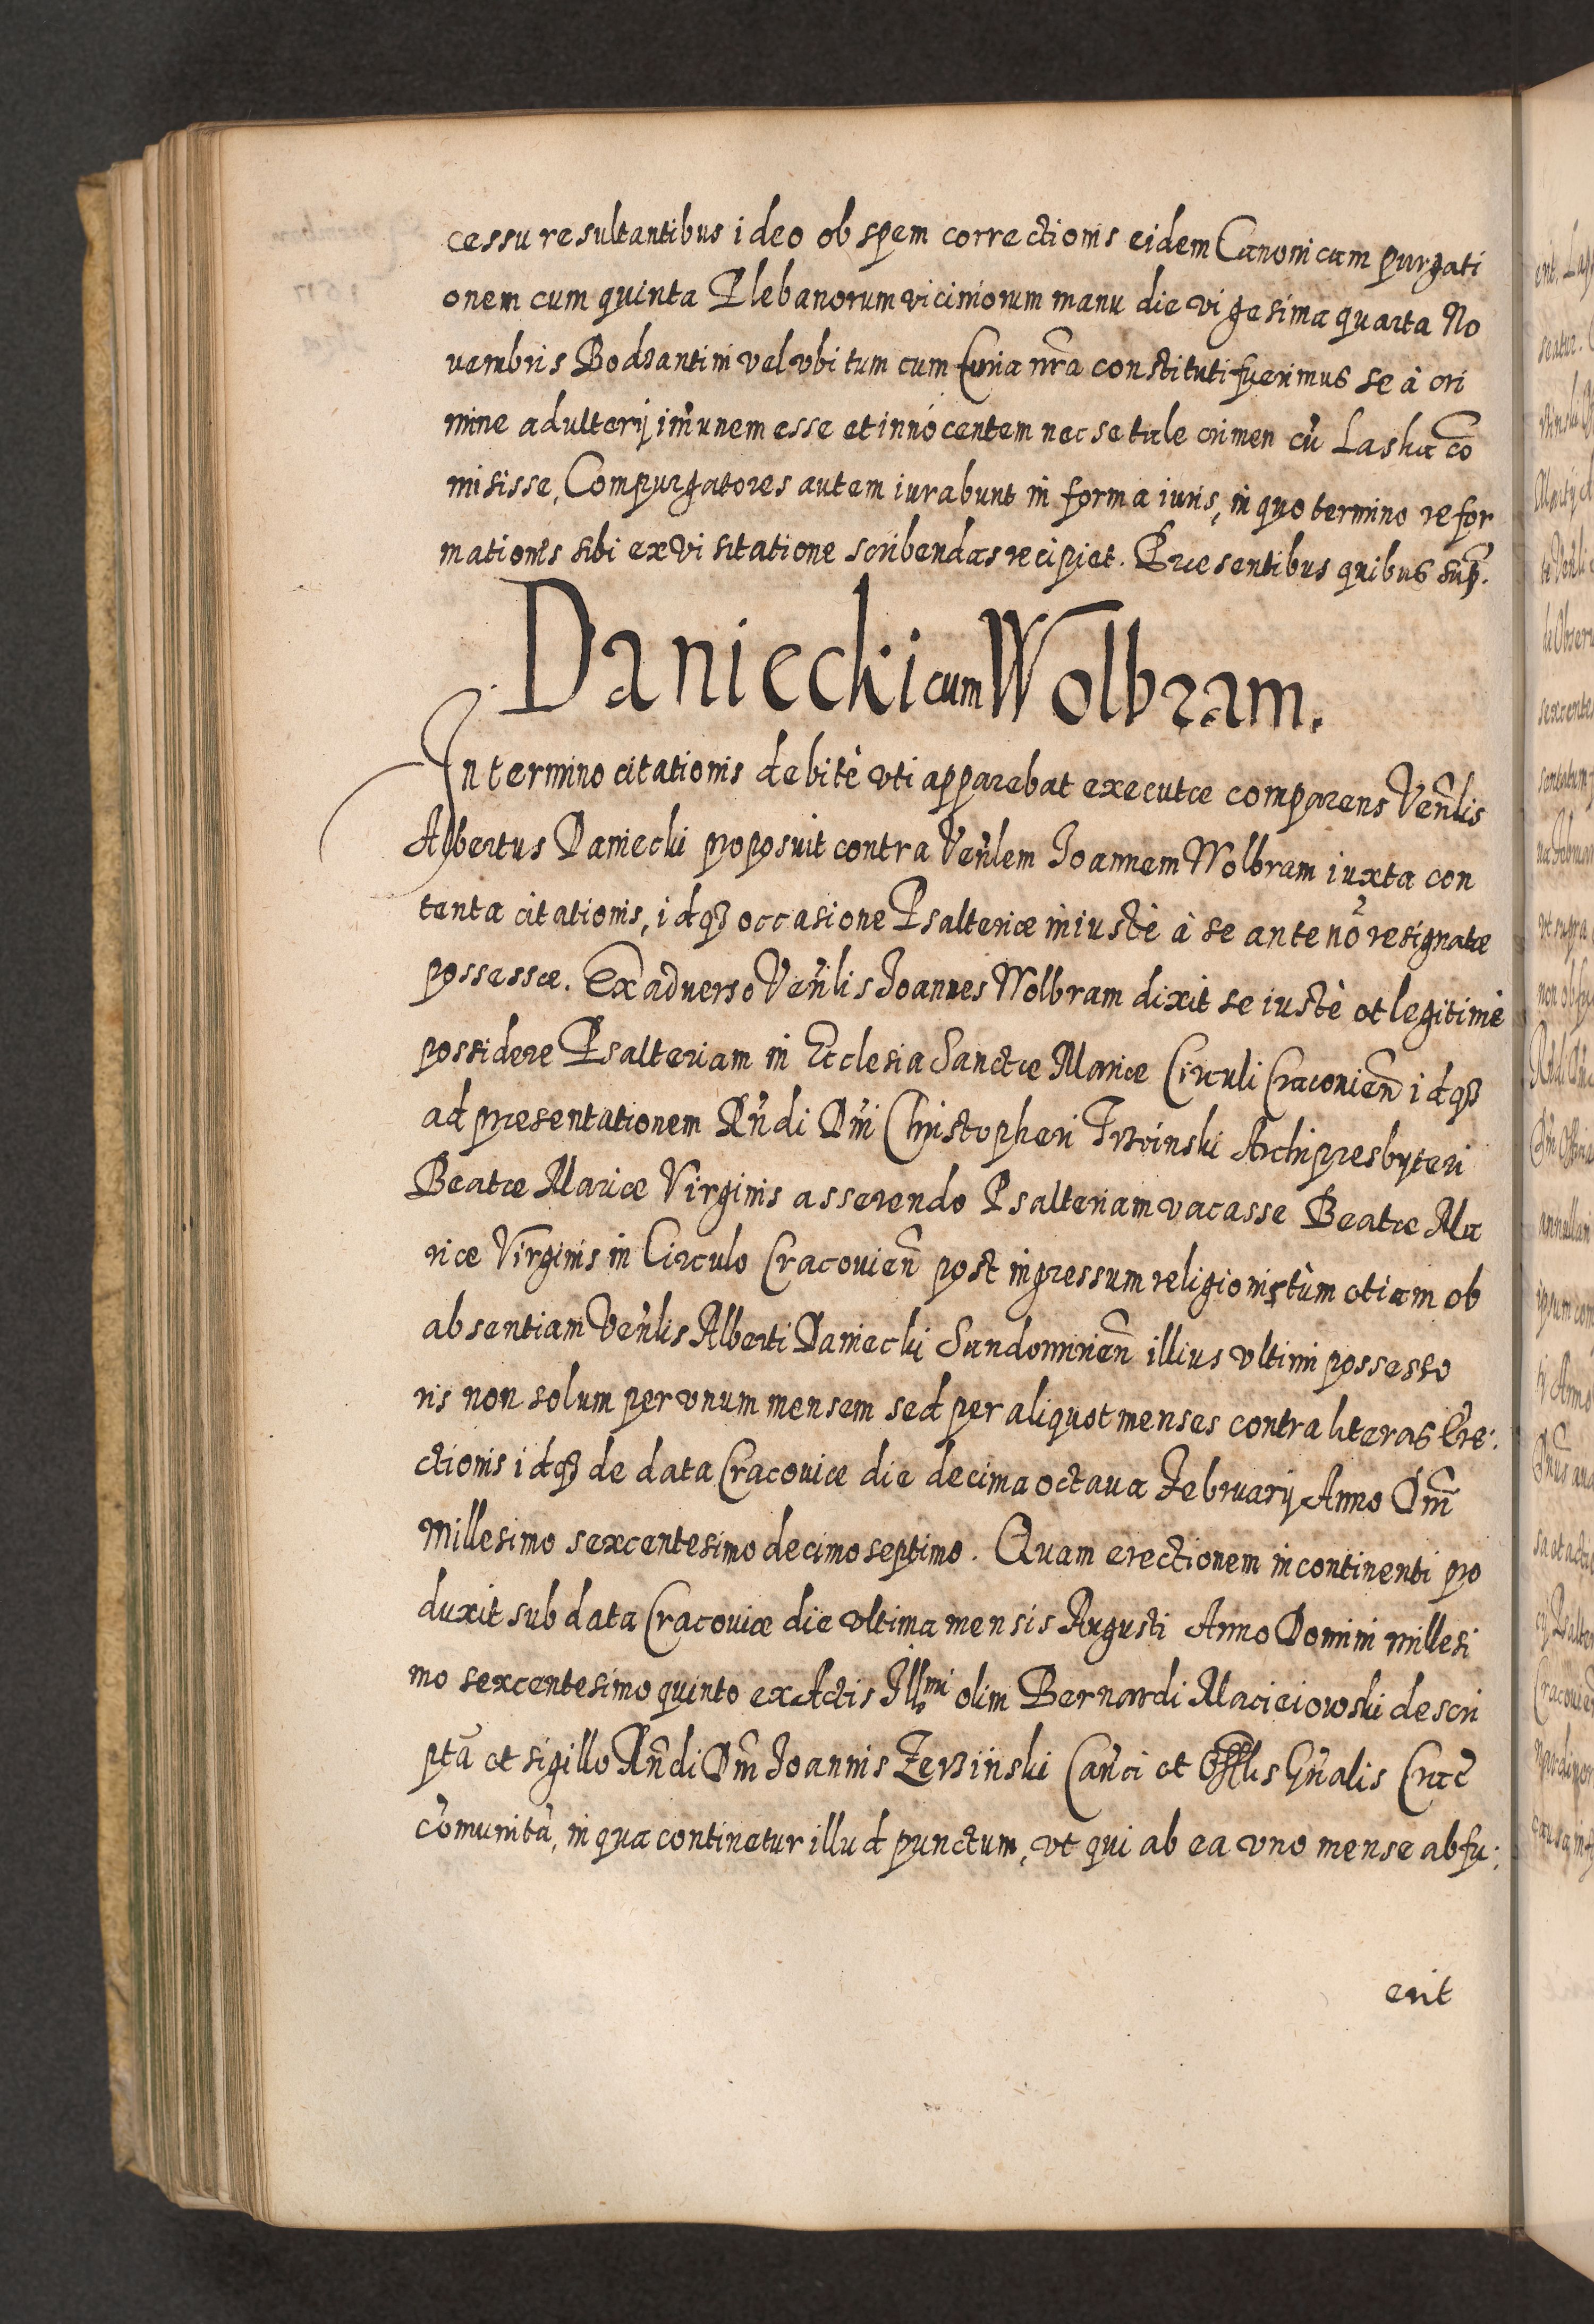 cessu resultantibus ideo ob spem correctionis eidem Canonicam purgati
onem cum quinta Plebanorum viciniorum manu die vigesima quarta No
uembris Bodzantini vel vbi tum cum Curia nr̃a constituti fuerimus se à cri
mine adulterij im̃unem esse et innocentem nec se tale crimen cũ Laska cõ
misisse, Compurgatores autem iurabunt in forma iuris, in quo termino refor
mationis sibi ex visitatione scribendas recipiet. Præsentibus quibus sup̃.
Daniecki cum Wolbram.
In termino citationis debitè vti apparebat executæ comparens Veñlis
Albertus Daniecki proposuit contra Veñlem Joannem Wolbram iuxta con
tenta citationis, idq3 occasione Psalteriæ iniustè à se ante nõ resignatæ
possessæ. Ex aduerso Veñlis Joannes Wolbram dixit se iustè et legitimè
possidere Psalteriam in Ecclesia Sanctæ Mariæ Circuli Cracouieñ idq3
ad presentationem Rñdi Dñi Christopheri Trzcinski Archipresbyteri
Beatæ Mariæ Virginis asserendo Psalteriam vacasse Beatæ Ma
riæ Virginis in Circulo Cracouieñ post ingressum religionis tùm etiam ob
absentiam Veñlis Alberti Daniecki Sandomirieñ illius vltimi possesso
ris non solum per vnum mensem sed per aliquot menses contra literas Ere:
ctionis idq3 de data Cracouiæ die decima octaua Februarij Anno Dñi
Millesimo sexcentesimo decimo septimo. Quam erectionem incontinenti pro
duxit sub data Cracouiæ die vltima mensis Augusti Anno Domini millesi
mo sexcentesimo quinto ex Actis Illmi olim Bernardi Macieiowski descri
ptã et sigillo Rñdi Dñi Joannis Zerzinski Cañci et Offlis Gñalis Crac̃
com̃unitã, in qua continetur illud punctum, vt qui ab ea vno mense abfu:
erit